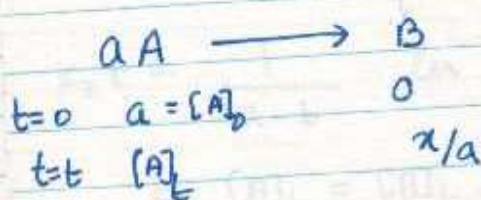 aA ⟶ B
t=0 a = [A]₀ 0
t=t [A]t x/a